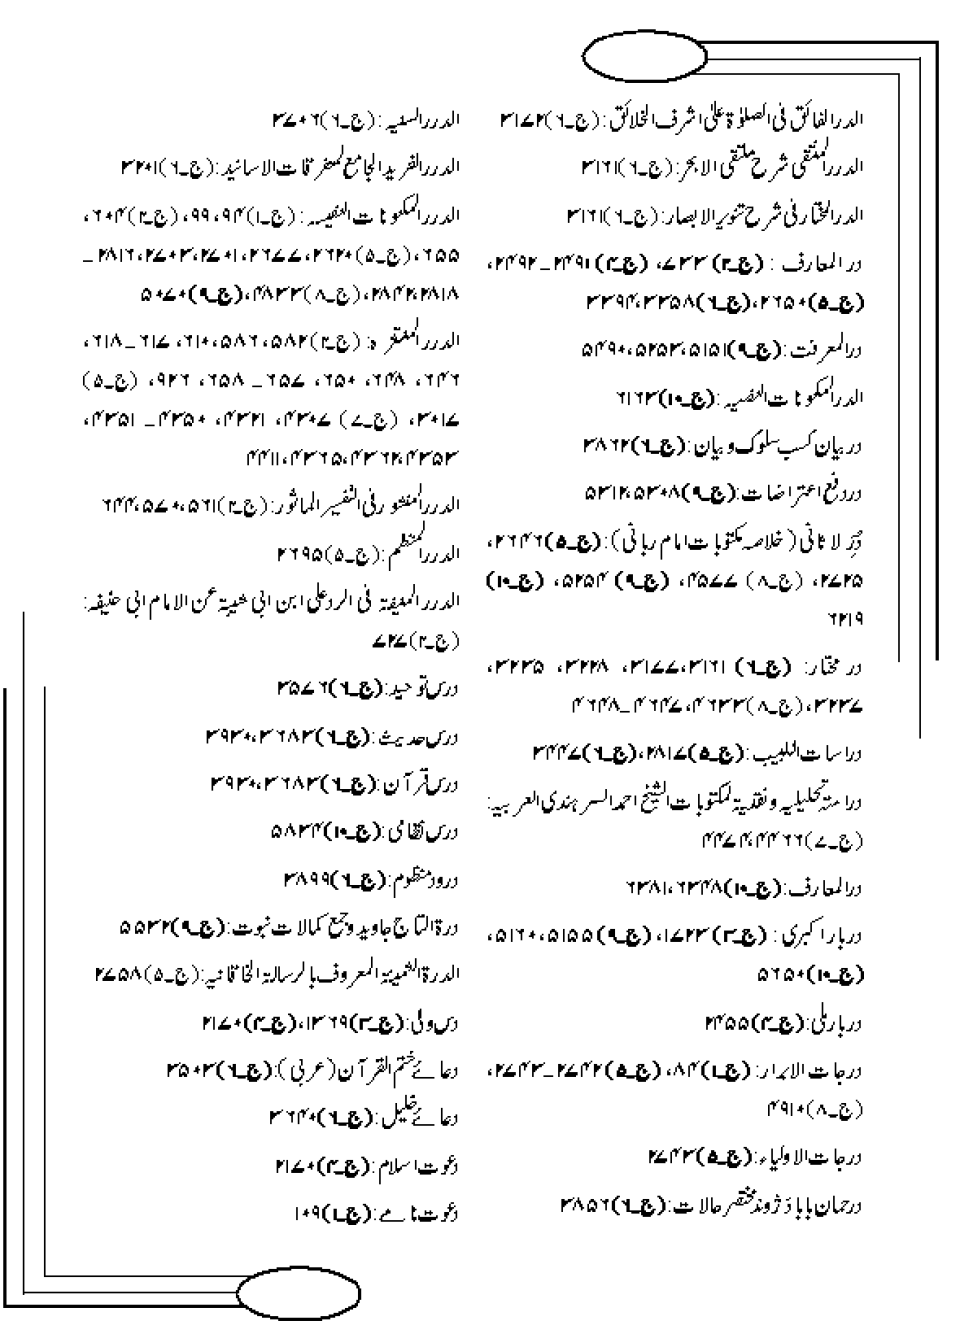 الدررالفائق فی الصلوٰۃ علیٰ اشرف الخلائق: (ج۔۶)۳۱۷۲
الدررالمنتقی شرح ملتقی الابحر: (ج۔۶)۳۱۶۱
الدررالمختار فی شرح تنویر الابصار: (ج۔۶)۳۱۶۱
در المعارف : (ج۔۲)۷۳۳، (ج۔۴)۲۴۹۱۔۲۴۹۲،
(ج۔۵)۲۶۵۰، (ج۔۶)۳۳۵۸، ۳۳۹۴
درالمعرفت: (ج۔۹)۵۱۵۱، ۵۲۵۳، ۵۴۹۰
الدررالمکنونات النفیسہ: (ج۔۱۰)۶۱۶۳
دربیان کسب سلوک و بیان: (ج۔۶)۳۸۶۲
دررفع اعتراضات: (ج۔۹)۵۳۰۸، ۵۳۱۲
دُرِّ لاثانی (خلاصہ مکتوبات امام ربانی): (ج۔۵)۲۶۴۶،
۲۷۲۵، (ج۔۸) ۴۵۷۷، (ج۔۹) ۵۲۵۴، (ج۔۱۰)
۶۲۱۹
در مختار: (ج۔۶) ۳۱۶۱، ۳۱۷۷، ۳۲۲۸، ۳۲۳۵،
۳۲۳۷، (ج۔۸)۴۶۳۳، ۴۶۴۷۔۴۶۴۸
دراسات اللبیب: (ج۔۵)۲۸۱۷، (ج۔۶)۳۴۴۷
دراستہ تحلیلیہ و نقدیۃ لمکتوبات الشیخ احمد السرہندی العربیہ:
(ج۔۷)۴۴۶۶، ۴۴۷۴
درالمعارف: (ج۔۱۰)۶۳۴۸، ۶۳۸۱
دربار اکبری : (ج۔۳)۱۷۲۳، (ج۔۹)۵۱۵۵، ۵۱۶۰،
(ج۔۱۰)۵۶۵۰
دربارِ ملی: (ج۔۴)۲۴۵۵
درجات الابرار: (ج۔۱)۸۴، (ج۔۵)۲۷۴۲۔۲۷۴۳،
(ج۔۸)۴۹۱۰
درجات الاولیاء: (ج۔۵)۲۷۴۳
درحمان بابا دژوند مختصر حالات: (ج۔۶)۳۸۵۶
الدررالسنیہ: (ج۔۶)۳۷۰۶
الدررالفرید الجامع لمتفرقات الاسانید: (ج۔۶)۳۲۰۱
الدررالمکنونات النفیسہ : (ج۔۱)۹۴، ۹۹، (ج۔۲)۶۰۴،
۶۵۵، (ج۔۵)۲۶۲۰، ۲۶۷۷، ۲۷۰۱، ۲۷۰۳، ۲۸۱۶۔
۲۸۱۸، ۲۸۴۲، (ج۔۸)۴۸۳۳، (ج۔۹)۵۰۷۰
الدررالمنتثرہ: (ج۔۲)۵۸۲، ۵۸۶، ۶۱۰، ۶۱۷۔۶۱۸،
۶۴۶، ۶۴۸، ۶۵۰، ۶۵۷۔۶۵۸، ۹۲۶، (ج۔۵)
۳۰۱۷، (ج۔۷) ۴۳۰۷، ۴۳۲۱، ۴۳۵۰۔۴۳۵۱،
۴۳۵۳، ۴۳۶۲، ۴۳۶۵، ۴۴۱۱
الدررالمنثور فی التفسیر الماثور: (ج۔۲)۵۶۱، ۵۷۰، ۶۴۴
الدررالمنظم: (ج۔۵)۲۶۹۵
الدررالمنیفۃ فی الرد علی ابن ابی شیبۃ عن الامام ابی حنیفہ:
(ج۔۲)۷۲۷
درسِ توحید: (ج۔۶)۳۵۷۶
درسِ حدیث: (ج۔۶)۳۶۸۳، ۳۹۳۰
درسِ قرآن: (ج۔۶)۳۶۸۳، ۳۹۳۰
درسِ نظامی: (ج۔۱۰)۵۸۳۴
درودِ منظوم: (ج۔۶)۳۸۹۹
درۃ التاج جاوید و جمع کمالات نبوت: (ج۔۹)۵۵۳۲
الدرۃ الثمینۃ المعروف بالرسالۃ الخاقانیہ: (ج۔۵)۲۷۵۸
دس ولی: (ج۔۳)۱۳۶۹، (ج۔۴)۲۱۷۰
دعائے ختم القرآن (عربی): (ج۔۶)۳۵۰۳
دعائے خلیل: (ج۔۶)۳۶۴۰
دعوت اسلام: (ج۔۴)۲۱۷۰
دعوت نامے: (ج۔۱)۱۰۹